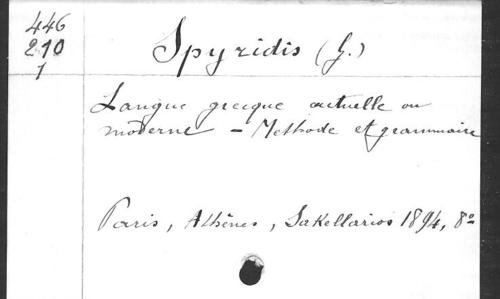 446
210
1
Spyridis (G.)
Langue grecque actuelle ou
moderne - Méthode et grammaire
Paris, Athènes, Sakellarios 1894, 8º